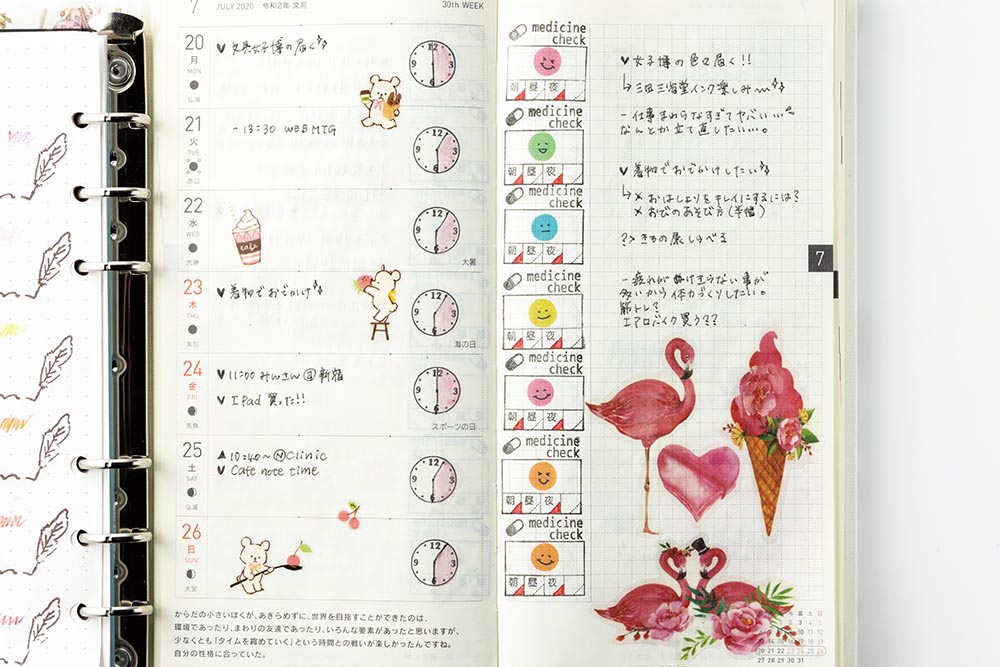 7 JULY 2020 令和2年 文月 30th WEEK
20 月 MON 仏滅
♥文具女子博の届く
21 火 TUE 赤口
- 13:30 WEB MTG
22 水 WED 先勝
cafe
大暑
23 木 THU 友引
♥着物でおでかけ
海の日
24 金 FRI 先負
♥11:00 みんさん@新宿
♥iPad 買った!!
スポーツの日
25 土 SAT 仏滅
▲10:40~ⓃClinic
♥Cafe note time
26 日 SUN 大安
からだの小さいぼくが、あきらめずに、世界を目指すことができたのは、
環境であったり、まわりの友達であったり、いろんな要素があったと思いますが、
少なくとも「タイムを縮めていく」という時間との戦いが楽しかったんですね。
自分の性格に合っていた。
medicine check
朝 昼 夜
medicine check
朝 昼 夜
medicine check
朝 昼 夜
medicine check
朝 昼 夜
medicine check
朝 昼 夜
medicine check
朝 昼 夜
medicine check
朝 昼 夜
♥女子博の色々届く!!
↳三田三昭堂インク楽しみ
- 仕事まわらなすぎてヤバい…
なんとか立て直したい。
♥着物でおでかけしたい
↳×おはしょりをキレイにするには?
×おびのあそび方(半幅)
?>きもの展しらべる
- 疲れがぬけきらない事が
多いから体力づくりしたい。
筋トレ?
エアロバイク買う??
7
20 21 22 23 24 25 26
27 28 29 30 31